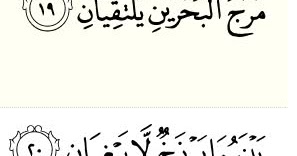 مَرَجَ الْبَحْرَيْنِ يَلْتَقِيَانِ ۝١٩
بَيْنَهُمَا بَرْزَخٌ لَّا يَبْغِيَانِ ۝٢٠